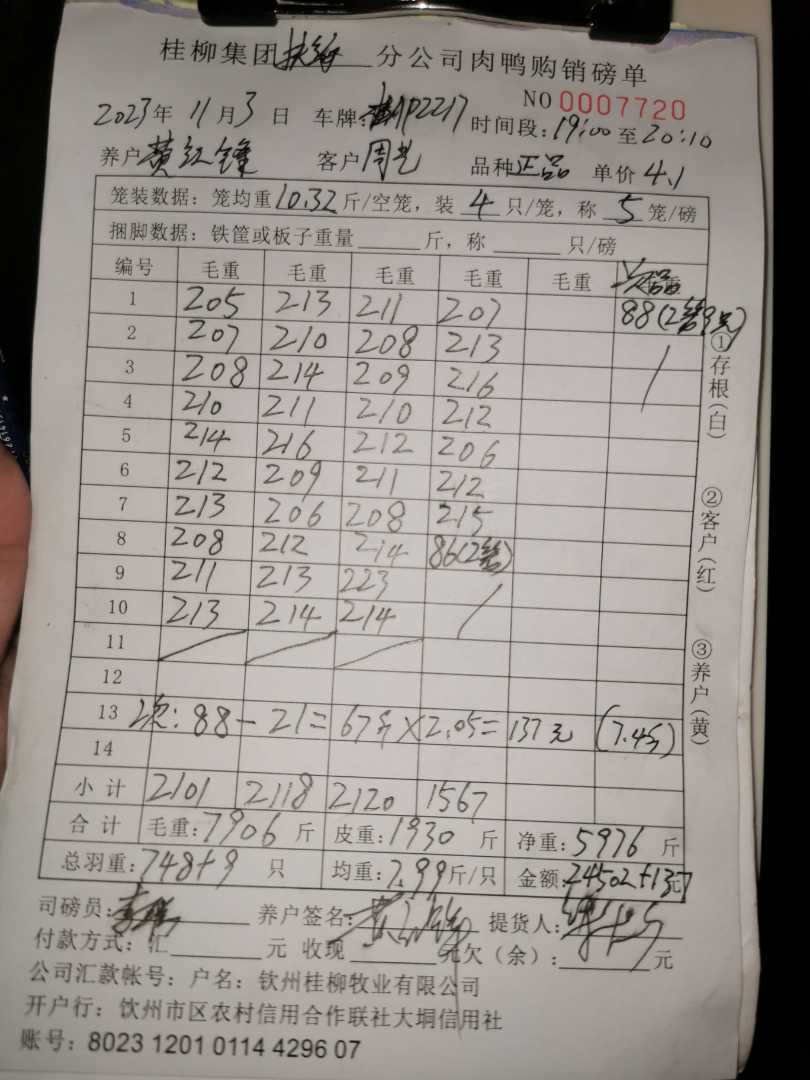 桂柳集团 分公司肉鸭购销磅单
NO 0007720
2023年 11月 3日 车牌: AP2217 时间段: 19:00 至 20:10
养户 黄红锋 客户 周 品种 正品 单价 4.1
笼装数据: 笼均重 10.32 斤/空笼, 装 4 只/笼, 称 5 笼/磅
捆脚数据: 铁筐或板子重量 斤, 称 只/磅
编号 毛重 毛重 毛重 毛重 毛重
1 205 213 211 207 88(2笼9只)
2 207 210 208 213
3 208 214 209 216
4 210 211 210 212
5 214 216 212 206
6 212 209 211 212
7 213 206 208 215
8 208 212 214 86(2笼)
9 211 213 223
10 213 214 214
11
12
13 次: 88 - 21 = 67斤 × 2.05 = 137元 (7.4斤)
14
小计 2101 2118 2120 1567
合计 毛重: 7906 斤 皮重: 1930 斤 净重: 5976 斤
总羽重: 748+9 只 均重: 7.99 斤/只 金额: 24502+137元
司磅员: 养户签名: 提货人:
付款方式: 汇 元 收现 元 欠(余): 元
公司汇款帐号: 户名: 钦州桂柳牧业有限公司
开户行: 钦州市区农村信用合作联社大垌信用社
账号: 8023 1201 0114 4296 07
①存根(白) ②客户(红) ③养户(黄)